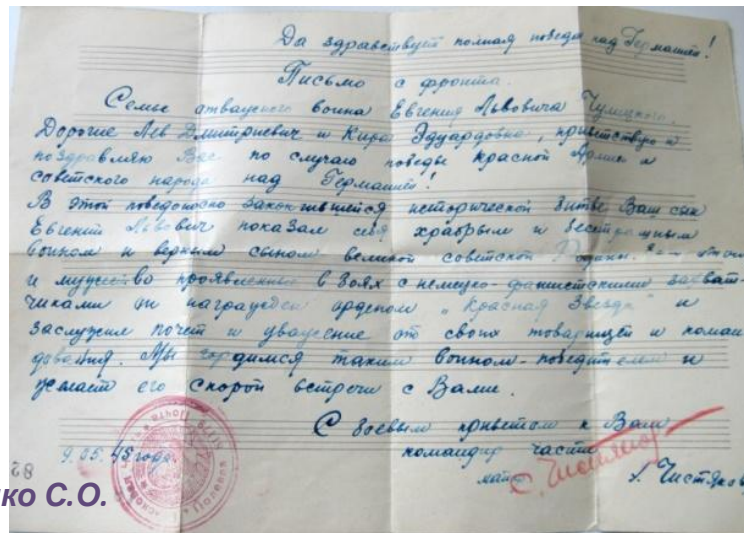 Да здравствует полная победа над Германией!
Письмо с фронта.
Семье отважного воина Евгения Львовича Чулицкого.
Дорогие Лев Дмитриевич и Кира Эдуардовна, приветствую и
поздравляю Вас по случаю победы Красной Армии и
советского народа над Германией!
В этой победоносно закончившейся исторической битве Ваш сын
Евгений Львович показал себя храбрым и бесстрашным
воином и верным сыном великой советской Родины. За
и мужество проявленные в боях с немецко-фашистскими захват-
чиками он награжден орденом „Красная Звезда" и
заслужил почет и уважение от своих товарищей и коман
дования. Мы гордимся таким воином-победителем и
желаем его скорой встречи с Вами.
С боевым приветом к Вам
9.05.45 года
командир части
майор
Чистяков
82
ко С.О.